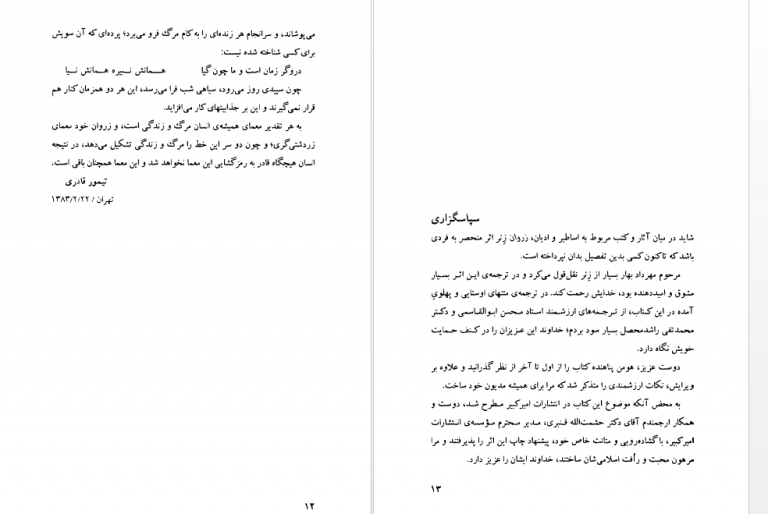 می‌پوشاند، و سرانجام هر زنده‌ای را به کام مرگ فرو می‌برد؛ پرده‌ای که آن سویش
برای کسی شناخته شده نیست:
دروگر زمان است و ما چون گیا همانش نبیره همانش نیا
چون سپیدی روز می‌رود، سیاهی شب فرا می‌رسد، این هر دو همزمان کنار هم
قرار نمی‌گیرند و این بر جذابیتهای کار می‌افزاید.
به هر تقدیر معمای همیشه‌ی انسان مرگ و زندگی است، و زروان خود معمای
زردشتی‌گری؛ و چون دو سر این خط را مرگ و زندگی تشکیل می‌دهد، در نتیجه
انسان هیچگاه قادر به رمزگشایی این معما نخواهد شد و این معما همچنان باقی است.
تیمور قادری
تهران / ۱۳۸۳/۲/۲۲
۱۲
سپاسگزاری
شاید در میان آثار و کتب مربوط به اساطیر و ادیان، زروان زِنر اثر منحصر به فردی
باشد که تاکنون کسی بدین تفصیل بدان نپرداخته است.
مرحوم مهرداد بهار بسیار از زِنر نقل‌قول می‌کرد و در ترجمه‌ی این اثر بسیار
مشوق و امیددهنده بود، خدایش رحمت کند. در ترجمه‌ی متنهای اوستایی و پهلوی
آمده در این کتاب، از ترجمه‌های ارزشمند استاد محسن ابوالقاسمی و دکتر
محمدتقی راشدمحصل بسیار سود بردم؛ خداوند این عزیزان را در کنف حمایت
خویش نگاه دارد.
دوست عزیز، هومن پناهنده کتاب را از اول تا آخر از نظر گذرانید و علاوه بر
ویرایش، نکات ارزشمندی را متذکر شد که مرا برای همیشه مدیون خود ساخت.
به محض آنکه موضوع این کتاب در انتشارات امیرکبیر مطرح شد، دوست و
همکار ارجمندم آقای دکتر حشمت‌الله قنبری، مدیر محترم مؤسسه‌ی انتشارات
امیرکبیر، با گشاده‌رویی و متانت خاص خود، پیشنهاد چاپ این اثر را پذیرفتند و مرا
مرهون محبت و رأفت اسلامی‌شان ساختند، خداوند ایشان را عزیز دارد.
۱۳